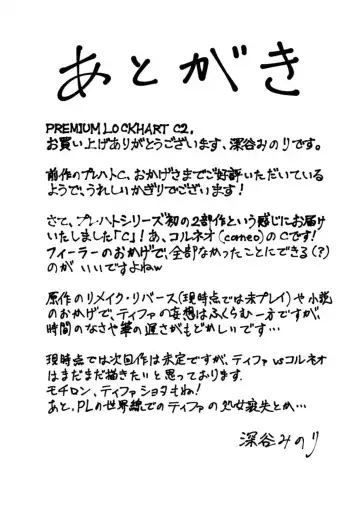 あとがき
PREMIUM LOCKHART C2.
お買い上げありがとうございます、深谷みのりです。
前作のプレハトC、おかげさまでご好評いただいている
ようで、うれしいかぎりでございます！
さて、プレハトシリーズ初の2部作という感じにお届け
いたしました「C」！あ、コルネオ(corneo)のCです！
フィーラーのおかげで、全部なかったことにできる(？)
のがいいですよねw
原作のリメイク・リバース(現時点では未プレイ)や小説
のおかげで、ティファの妄想はふくらむ一方ですが、
時間のなさや筆の遅さがもどかしいです…
現時点では次回作は未定ですが、ティファvsコルネオ
はまだまだ描きたいと思っております。
モチロン、ティファショタもね！
あと、PLの世界線でのティファの処女喪失とか…
深谷みのり